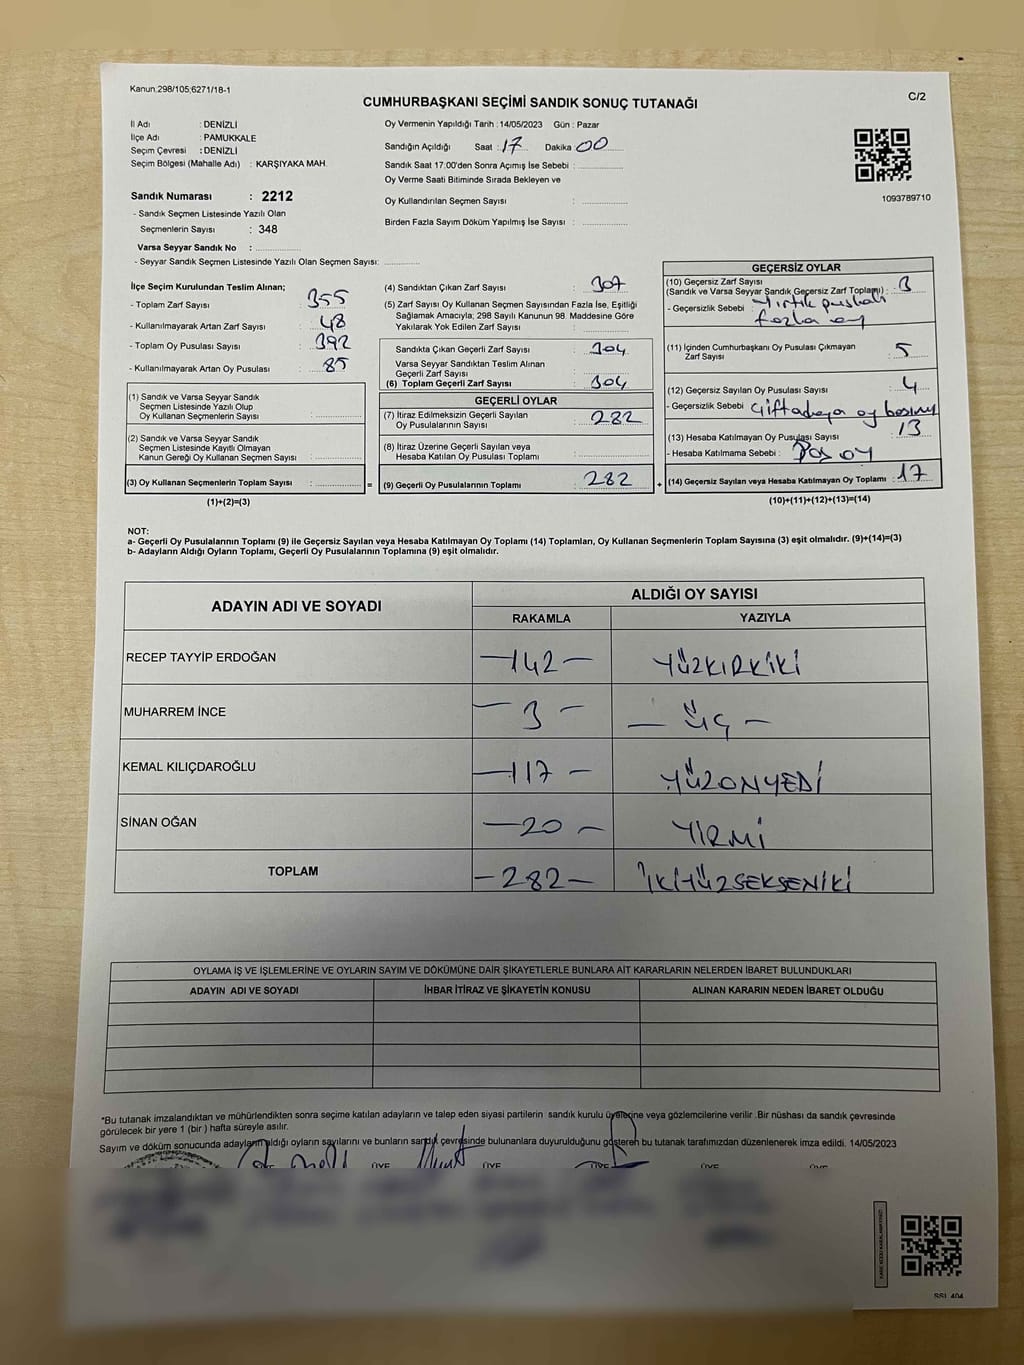 Kanun,298/105,6271/18-1
CUMHURBAŞKANI SEÇİMİ SANDIK SONUÇ TUTANAĞI
C/2
İl Adı : DENİZLİ
İlçe Adı : PAMUKKALE
Seçim Çevresi : DENİZLİ
Seçim Bölgesi (Mahalle Adı) : KARŞIYAKA MAH.
Sandık Numarası : 2212
- Sandık Seçmen Listesinde Yazılı Olan
Seçmenlerin Sayısı : 348
Varsa Seyyar Sandık No :
- Seyyar Sandık Seçmen Listesinde Yazılı Olan Seçmen Sayısı:
Oy Vermenin Yapıldığı Tarih : 14/05/2023 Gün : Pazar
Sandığın Açıldığı Saat : 17 Dakika 00
Sandık Saat 17:00'den Sonra Açımış İse Sebebi :
Oy Verme Saati Bitiminde Sırada Bekleyen ve
Oy Kullandırılan Seçmen Sayısı :
Birden Fazla Sayım Döküm Yapılmış İse Sayısı :
1093789710
İlçe Seçim Kurulundan Teslim Alınan;
- Toplam Zarf Sayısı : 355
- Kullanılmayarak Artan Zarf Sayısı : 48
- Toplam Oy Pusulası Sayısı : 392
- Kullanılmayarak Artan Oy Pusulası : 85
(1) Sandık ve Varsa Seyyar Sandık
Seçmen Listesinde Yazılı Olup
Oy Kullanan Seçmenlerin Sayısı :
(2) Sandık ve Varsa Seyyar Sandık
Seçmen Listesinde Kayıtlı Olmayan
Kanun Gereği Oy Kullanan Seçmen Sayısı :
(3) Oy Kullanan Seçmenlerin Toplam Sayısı : =
(1)+(2)=(3)
(4) Sandıktan Çıkan Zarf Sayısı : 307
(5) Zarf Sayısı Oy Kullanan Seçmen Sayısından Fazla İse, Eşitliği
Sağlamak Amacıyla; 298 Sayılı Kanunun 98. Maddesine Göre
Yakılarak Yok Edilen Zarf Sayısı :
Sandıkta Çıkan Geçerli Zarf Sayısı : 304
Varsa Seyyar Sandıktan Teslim Alınan
Geçerli Zarf Sayısı :
(6) Toplam Geçerli Zarf Sayısı : 304
GEÇERLİ OYLAR
(7) İtiraz Edilmeksizin Geçerli Sayılan
Oy Pusulalarının Sayısı : 282
(8) İtiraz Üzerine Geçerli Sayılan veya
Hesaba Katılan Oy Pusulası Toplamı :
(9) Geçerli Oy Pusulalarının Toplamı : 282 +
GEÇERSİZ OYLAR
(10) Geçersiz Zarf Sayısı
(Sandık ve Varsa Seyyar Sandık Geçersiz Zarf Toplamı) : 3
- Geçersizlik Sebebi : Yırtık pusulalı
fazla oy
(11) İçinden Cumhurbaşkanı Oy Pusulası Çıkmayan
Zarf Sayısı : 5
(12) Geçersiz Sayılan Oy Pusulası Sayısı : 4
- Geçersizlik Sebebi : Çift adaya oy
(13) Hesaba Katılmayan Oy Pusulası Sayısı : 13
- Hesaba Katılmama Sebebi : oy
(14) Geçersiz Sayılan veya Hesaba Katılmayan Oy Toplamı : 17
(10)+(11)+(12)+(13)=(14)
NOT:
a- Geçerli Oy Pusulalarının Toplamı (9) ile Geçersiz Sayılan veya Hesaba Katılmayan Oy Toplamı (14) Toplamları, Oy Kullanan Seçmenlerin Toplam Sayısına (3) eşit olmalıdır. (9)+(14)=(3)
b- Adayların Aldığı Oyların Toplamı, Geçerli Oy Pusulalarının Toplamına (9) eşit olmalıdır.
ADAYIN ADI VE SOYADI
ALDIĞI OY SAYISI
RAKAMLA YAZIYLA
RECEP TAYYİP ERDOĞAN —142— YÜZKIRKİKİ
MUHARREM İNCE — 3 — — ÜÇ —
KEMAL KILIÇDAROĞLU —117— YÜZONYEDİ
SİNAN OĞAN —20— YİRMİ
TOPLAM —282— İKİYÜZSEKSENİKİ
OYLAMA İŞ VE İŞLEMLERİNE VE OYLARIN SAYIM VE DÖKÜMÜNE DAİR ŞİKAYETLERLE BUNLARA AİT KARARLARIN NELERDEN İBARET BULUNDUKLARI
ADAYIN ADI VE SOYADI İHBAR İTİRAZ VE ŞİKAYETİN KONUSU ALINAN KARARIN NEDEN İBARET OLDUĞU
*Bu tutanak imzalandıktan ve mühürlendikten sonra seçime katılan adayların ve talep eden siyasi partilerin sandık kurulu üyelerine veya gözlemcilerine verilir .Bir nüshası da sandık çevresinde
görülecek bir yere 1 (bir ) hafta süreyle asılır.
Sayım ve döküm sonucunda adayların aldığı oyların sayılarını ve bunların sandık çevresinde bulunanlara duyurulduğunu gösteren bu tutanak tarafımızdan düzenlenerek imza edildi. 14/05/2023
ÜYE ÜYE ÜYE ÜYE